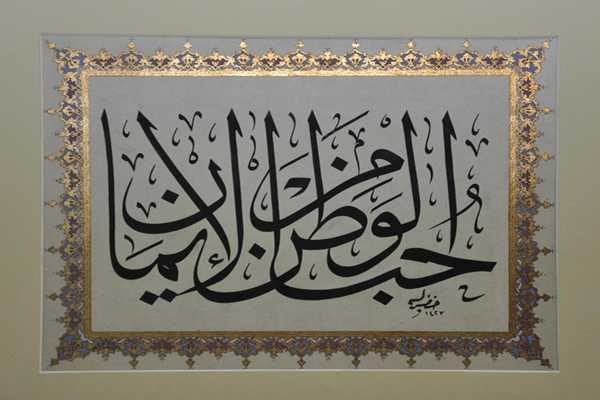 حُب الوطن من الإيمان
١٤٢٣